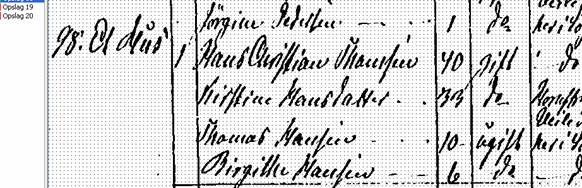 Opslag 19
Opslag 20
Jörgine Pedersen 1 do
98. Et Huus 1 Hans Christian Thomsen 40 gift do
Kirstine Hansdatter 33 do
Thomas Hansen 10 ugift
Birgithe Hansen 6 do do